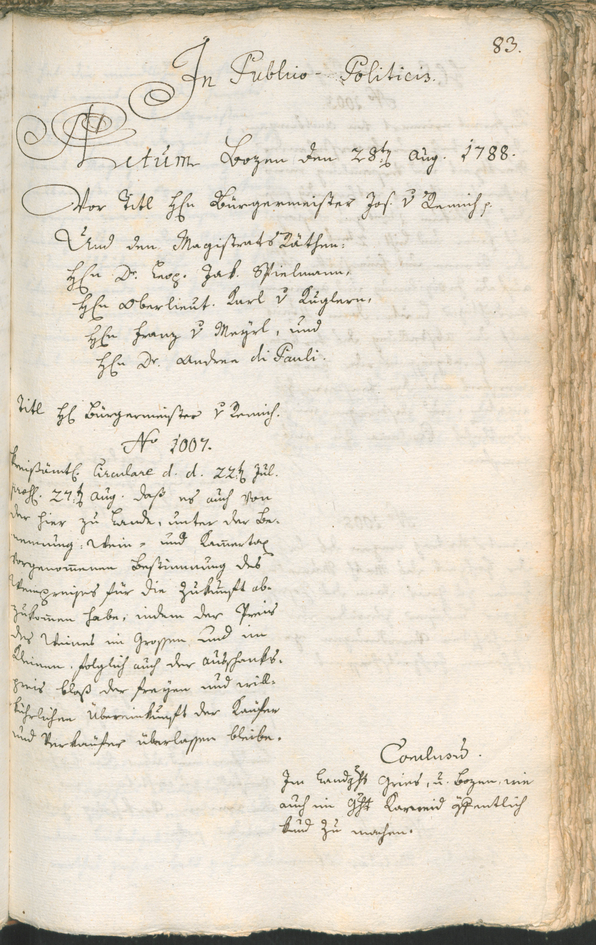 83.
In Publico-Politicis.
Actum Bozen den 28t Aug. 1788.
Vor Titl Hln Bürgermeister Jos. v Remich,
Und den Magistrats Räthen:
Hln Dr. Leop. Jak. Spielmann,
Hln Oberlieut. Karl v Kuglern,
Hln Franz v Meyrl, und
Hln Dr. Andree di Pauli.
Titl Hl Bürgermeister v Remich.
No 1007.
Kreisämtl. Circulare d. d. 22t Jul.
27t Aug. daß es auch von
der hier zu Lande, unter der Be-
nennung, Wein- und Kamertax
vorgenommenen Bestimmung des
Weinpreises für die Zukunft ab-
zukommen habe, indem der Preis
des Weines im Grossen und im
Kleinen, folglich auch der Ausschanks-
preis bloß der freyen und will-
kührlichen Übereinkunft der Käufer
und Verkäufer überlassen bleibe.
Conclusum.
Im Landght Gries, u. Bozen, wie
auch im Ght Karneid öffentlich
kund zu machen.